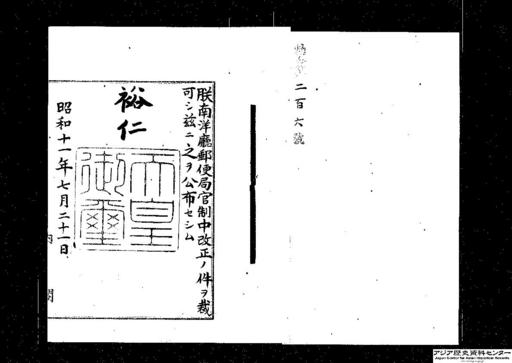 勅令第二百六號
朕南洋廳郵便局官制中改正ノ件ヲ裁
可シ茲ニ之ヲ公布セシム
裕仁
天皇
御璽
昭和十一年七月二十一日
内閣
アジア歴史資料センター
Japan Center for Asian Historical Records